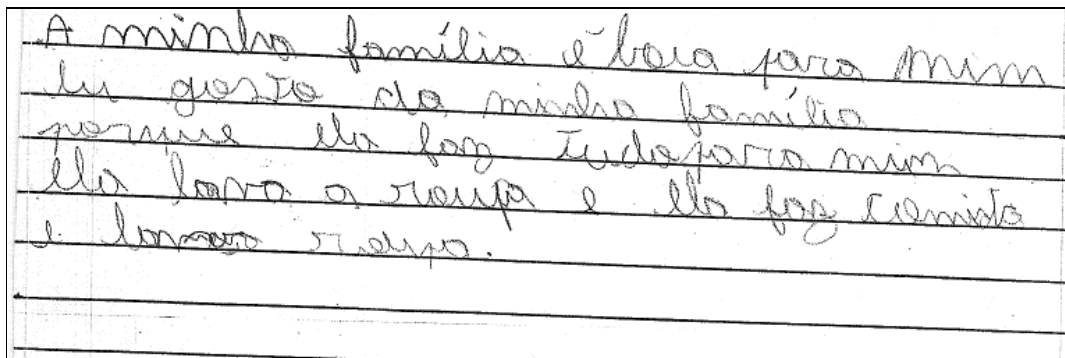 A minha família é boa para mim
Eu gosto da minha família
porque ela faz tudo para mim
Ela lava a roupa e ela faz comida
e roupa.